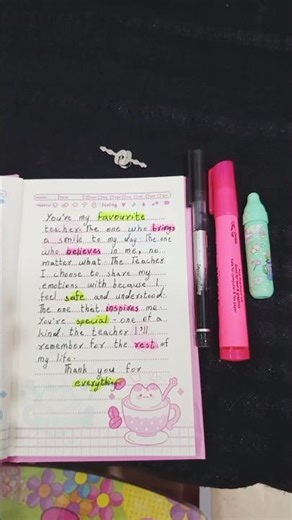 You're my favourite
teacher. The one who brings
a smile to my day. The one
who believes in me, no
matter what. The Teacher
I choose to share my
emotions with because I
feel safe and understood.
The one that inspires me.
You're special - one of a
kind. the teacher I'll
remember for the rest of
my life.
Thank you for
everything.